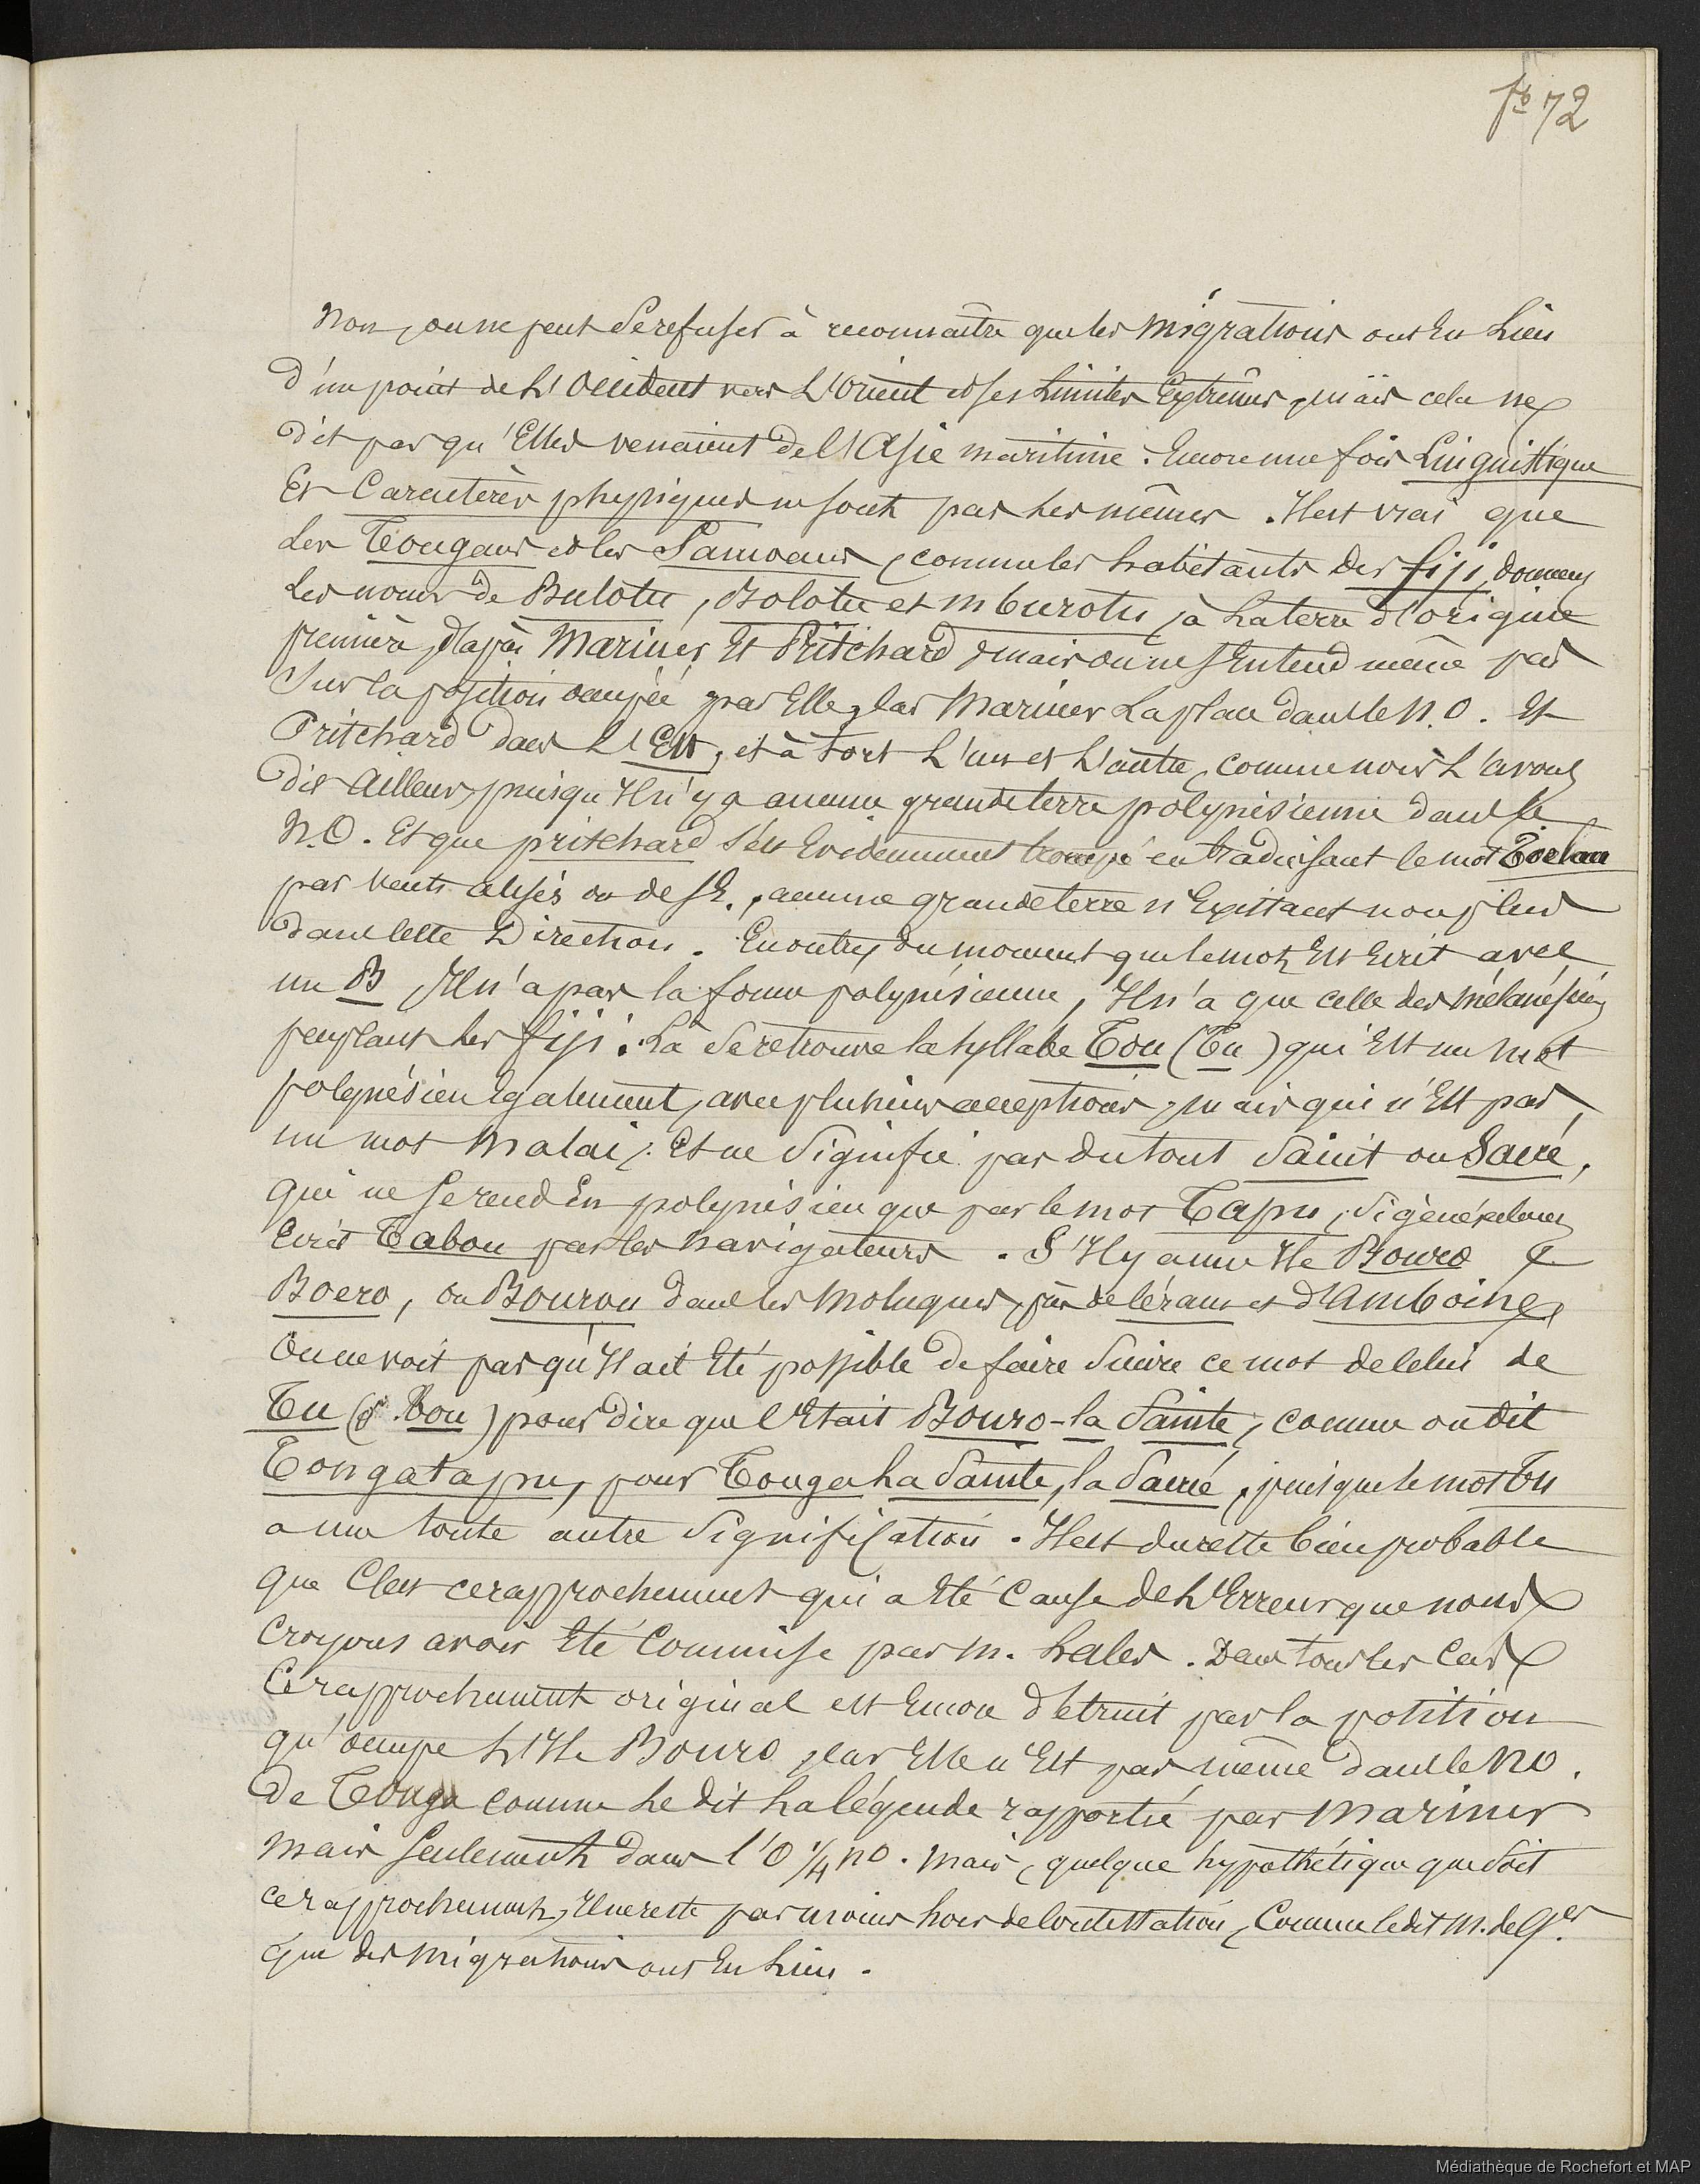 fº 72
Non, on ne peut se refuser à reconnaître que les migrations ont eu lieu
d'un point de l'Occident vers l'Orient et ses limites extrêmes, mais cela ne
dit pas qu'elles venaient de l'Asie maritime. Encore une fois Linguistique
Et Caractères physiques ne sont pas les mêmes. Il est vrai que
les Tongans et les Samoans, comme les habitants des fiji, donnent
les noms de Bulotu, Bolotu et mburotu, à la terre d'origine
première, d'après Mariner Et Pritchard, mais on ne s'entend même pas
sur la position occupée par Elle, car Mariner la place dans le N.O. Et
Pritchard dans l'Est, et à tort l'un et l'autre, comme nous l'avons
dit ailleurs, puisqu'il n'y a aucune grande terre polynésienne dans le
N.O. Et que pritchard s'est Evidemment trompé en traduisant le mot
par vents alisés ou de SE., aucune grande terre n'Existant non plus
dans cette Direction. En outre, du moment que le mot Est écrit avec
un B, Il n'a pas la forme polynésienne, Il n'a que celle des mélanésiens
peuplant les fiji. Là se retrouve la syllabe Tou (Tu) qui Est un mot
polynésien Egalement, avec plusieurs acceptions, mais qui n'Est pas
un mot Malai, Et ne signifie pas du tout saint ou Sacré,
qui ne se rend En polynésien que par le mot Tapu, si généralement
Ecrit Tabou par les navigateurs. S'Il y a une Ile Bouro
Boero, ou Bourou dans les Moluques, près de Céram et d'Amboine,
On ne voit pas qu'Il ait Eté possible de faire suivre ce mot de celui de
Tu (d. Tou) pour dire que c'Etait Bouro-la Sainte, comme on dit
Tongatapu, pour Tonga la Sainte, la Sacrée, puisque le mot Tu
a une toute autre signification. Il est du reste bien probable
que C'est ce rapprochement qui a Eté Cause de l'Erreur que nous
Croyons avoir Eté Commise par M. hales. Dans tous les Cas
Ce rapprochement original est Encore détruit par la position
qu'occupe l'Ile Bouro, car Elle n'Est pas même dans le NO.
De Tonga comme le dit la légende rapportée par Mariner
Mais seulement dans l'O 1/4 NO. Mais, quelque hypothétique que soit
ce rapprochement, Il ne reste pas moins hors de Contestation, Comme le dit M. de Qes
que des Migrations ont Eu lieu.
Médiathèque de Rochefort et MAP